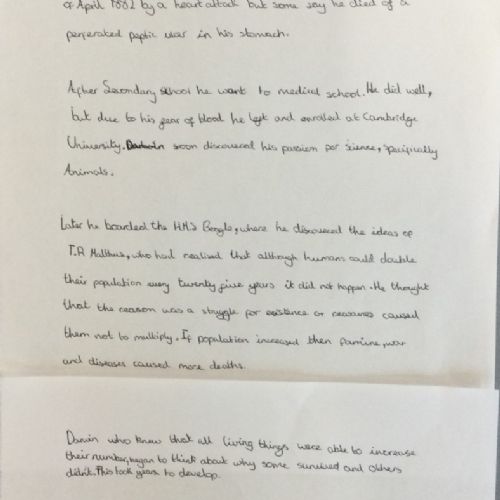 of April 1882 by a heart attack but some say he died of a
perferated peptic ulcer in his stomach.
After Secondary school he want to medical school. He did well,
but due to his fear of blood he left and enrolled at Cambridge
University. Darwin soon discovered his passion for science, specifically
Animals.
Later he boarded the HMS Beagle, where he discovered the ideas of
T.R Malthus, who had realised that although humans could double
their population every twenty five years it did not happen. He thought
that the reason was a struggle for existence or resources caused
them not to multiply. If population increased then famine, war
and diseases caused more deaths.
Darwin who knew that all living things were able to increase
their number, began to think about why some survived and others
didn't. This took years to develop.